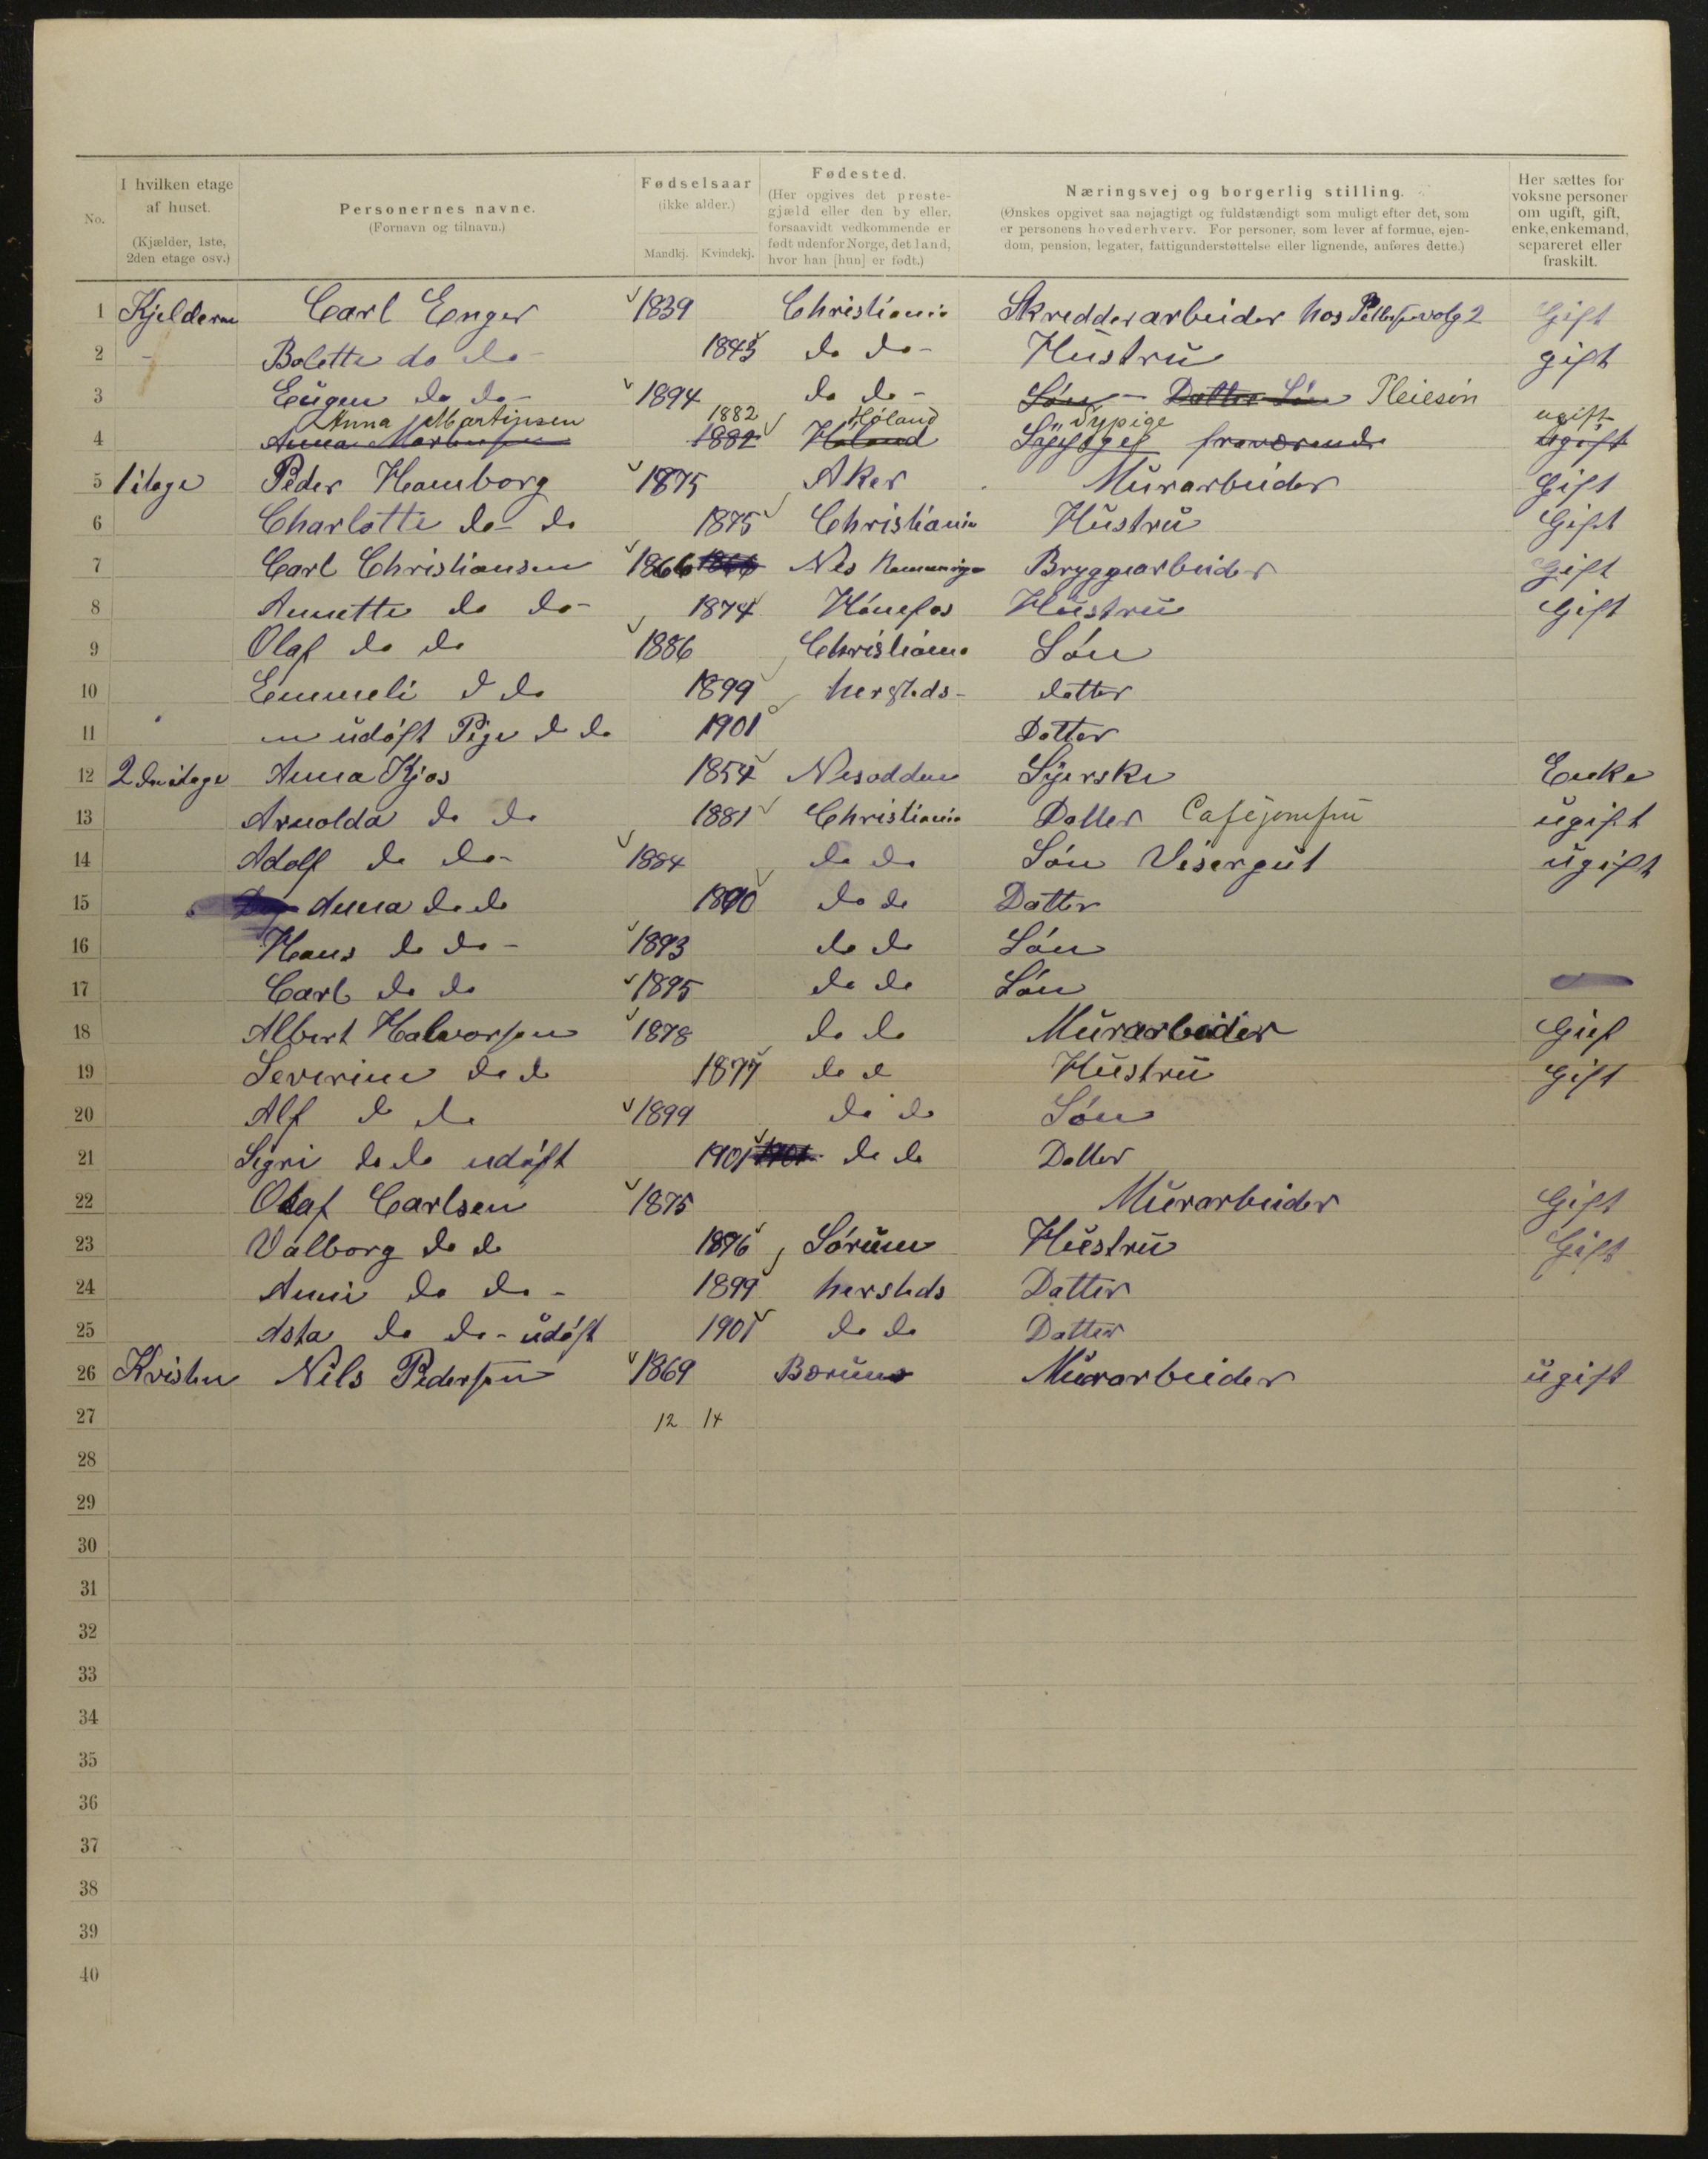 No.
I hvilken etage af huset. (Kjælder, 1ste, 2den etage osv.)
Personernes navne. (Fornavn og tilnavn.)
Fødselsaar (ikke alder.) Mandkj. Kvindekj.
Fødested. (Her opgives det prestegjæld eller den by eller, forsaavidt vedkommende er født udenfor Norge, det land, hvor han [hun] er født.)
Næringsvej og borgerlig stilling. (Ønskes opgivet saa nøjagtigt og fuldstændigt som muligt efter det, som er personens hovederhverv. For personer, som lever af formue, ejendom, pension, legater, fattigunderstøttelse eller lignende, anføres dette.)
Her sættes for voksne personer om ugift, gift, enke, enkemand, separeret eller fraskilt.
1 Kjelderne Carl Enger 1839 Christiania Skredderarbeider hos 2 Gift
2 - Bolette do do - 1843 do do - Hustru gift
3 Eugen do do - 1894 do do - Søn - Datter Søn Pleiesøn
Anna Martinsen 1882 Høland Sypige ugift
4 Anna Martinsen 1882 Høland Sypige fraværende ugift
5 1 etage Peder Hamborg 1875 Aker Murarbeider Gift
6 Charlotte do - do 1875 Christiania Hustru Gift
7 Carl Christiansen 1866 1866 Nes Romerige Bryggearbeider Gift
8 Annette do do - 1874 Hønefos Hustru Gift
9 Olaf do do 1886 Christiania Søn
10 Emmeli d do 1899 hersteds - datter
11 en udøft Pige d do 1901 Datter
12 2den etage Anna Kjos 1854 Nesodden Syerske Enke
13 Arnolda do do 1881 Christiania Datter Cafejomfru ugift
14 Adolf do do - 1884 do do Søn Visergut ugift
15 Anna do do 1890 do do Datter
16 Hans do do - 1893 do do Søn
17 Carl do do 1895 do do Søn
18 Albert Halvorsen 1878 do do Murarbeider Gief
19 Severine do d 1877 do d Hustru Gift
20 Alf d do 1899 do do Søn
21 Sigri do do udøft 1901 1901 do do Datter
22 Olaf Carlsen 1875 Murarbeider Gift
23 Valborg do d 1876 Sørum Hustru Gift
24 Anni do do - 1899 hersteds Datter
25 Asta do do - udøft 1901 do do Datter
26 Kvisten Nils Pedersen 1869 Bærum Murarbeider ugift
27 12 14
28
29
30
31
32
33
34
35
36
37
38
39
40